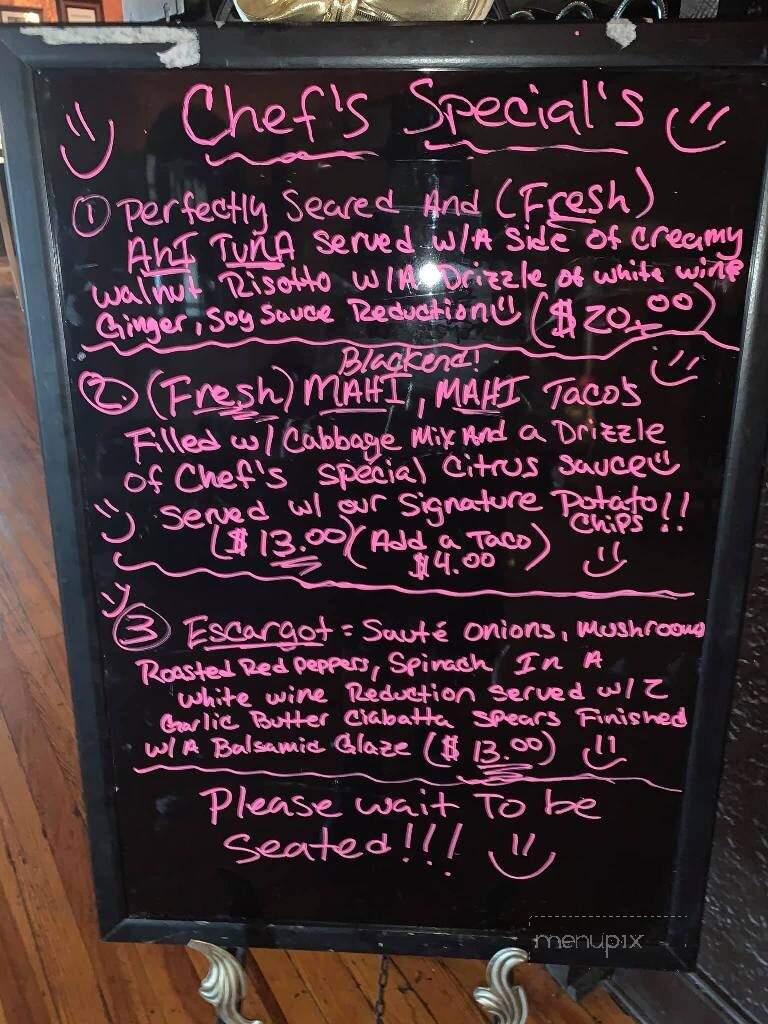 Chef's Special's
① Perfectly Seared And (Fresh)
AhI TUNA Served w/A Side of Creamy
walnut Risotto w/A Drizzle of white wine
Ginger, Soy Sauce Reduction ($20.00)
Blackend!
② (Fresh) MAHI, MAHI Taco's
Filled w/ Cabbage Mix And a Drizzle
of Chef's special Citrus sauce
Served w/ our Signature Potato!!
Chips
($13.00) (Add a Taco)
$4.00
③ Escargot = Sauté onions, mushrooms
Roasted Red peppers, Spinach In A
white wine Reduction served w/2
Garlic Butter Ciabatta spears Finished
w/A Balsamic Glaze ($13.00)
Please wait To be
Seated!!!
menupix